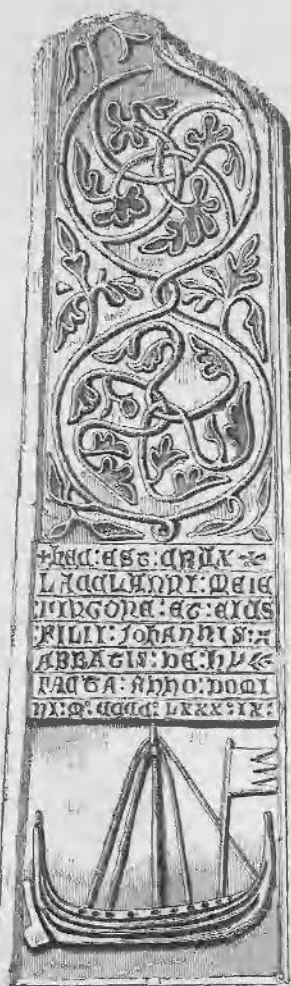 +HEC:EST:CRUX
LACCLANNI:MEIC
FINGONE:ET:EIUS
FILII:JOHANNIS:
ABBATIS:DE:HY
FACTA:ANNO:DOMI
NI:M°:CCCC:LXXX:IX: